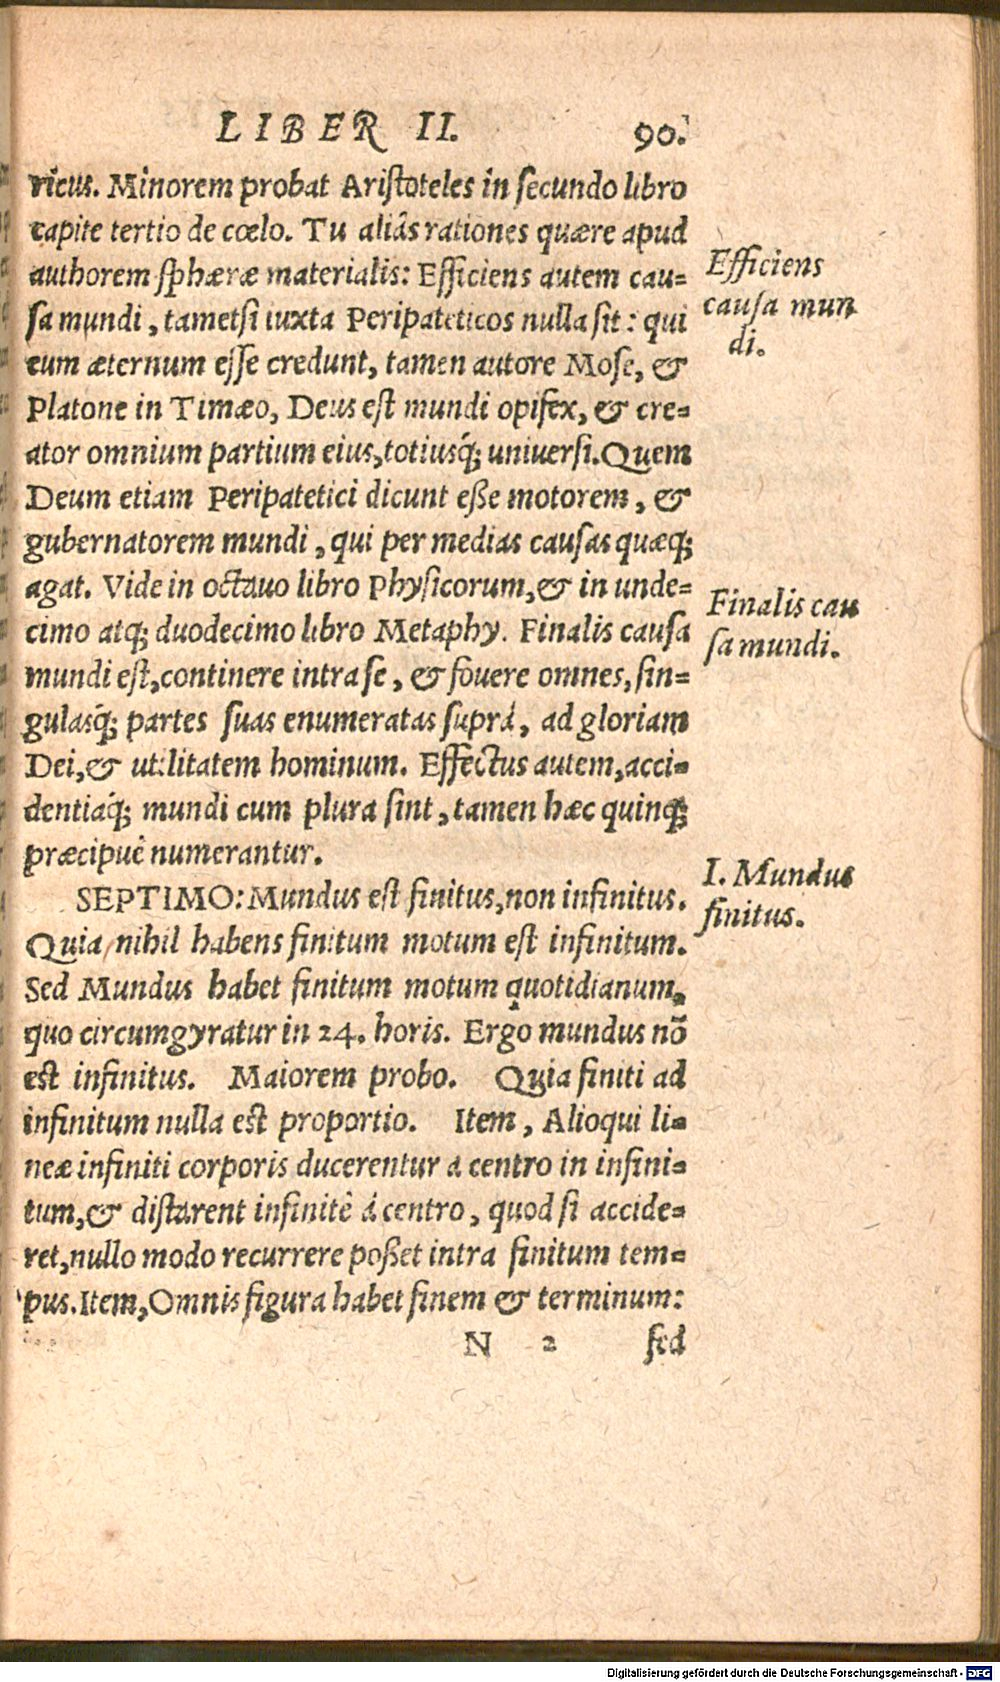 LIBER II. 90.
ricus. Minorem probat Aristoteles in secundo libro
capite tertio de cœlo. Tu aliâs rationes quære apud
authorem sphæræ materialis: Efficiens autem cau=
sa mundi, tametsi iuxta Peripateticos nulla sit: qui
eum æternum esse credunt, tamen autore Mose, &
Platone in Timæo, Deus est mundi opifex, & cre=
ator omnium partium eius, totiusq́; universi. Quem
Deum etiam Peripatetici dicunt eße motorem, &
gubernatorem mundi, qui per medias causas quæq;
agat. Vide in octavo libro Physicorum, & in unde=
cimo atq; duodecimo libro Metaphy. Finalis causa
mundi est, continere intra se, & fovere omnes, sin=
gulasq́; partes suas enumeratas suprà, ad gloriam
Dei, & utilitatem hominum. Effectus autem, acci=
dentiaq́; mundi cum plura sint, tamen hæc quinq;
præcipuè numerantur.
SEPTIMO: Mundus est finitus, non infinitus.
Quia nihil habens finitum motum est infinitum.
Sed Mundus habet finitum motum quotidianum,
quo circumgyratur in 24. horis. Ergo mundus nō
est infinitus. Maiorem probo. Quia finiti ad
infinitum nulla est proportio. Item, Alioqui li=
neæ infiniti corporis ducerentur à centro in infini=
tum, & distarent infinitè à centro, quod si accide=
ret, nullo modo recurrere poßet intra finitum tem=
pus. Item, Omnis figura habet finem & terminum:
N 2 sed
Efficiens
causa mun
di.
Finalis cau
sa mundi.
I. Mundus
finitus.
Digitalisierung gefördert durch die Deutsche Forschungsgemeinschaft - DFG